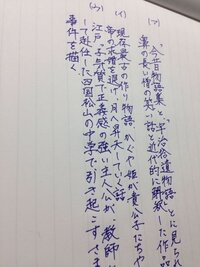 (ア)『今昔物語集』と『宇治拾遺物語』とに見られ
鼻の長い僧の笑い話を近代的に解釈した作品
(イ)現存最古の作り物語、かぐや姫が貴公子たちや
帝の求婚を退け、月へ昇天していく話
(ウ)江戸っ子気質で正義感の強い主人公が、教師
して赴任した四国松山の中学で引き起こすさま
事件を描く